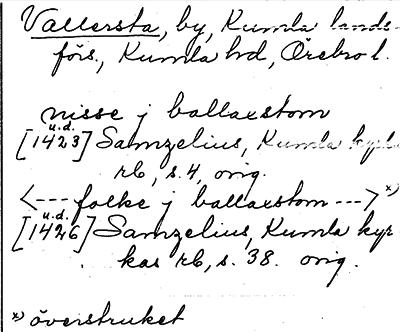 Vallersta, by, Kumla lands-
förs., Kumla hd, Örebro l.
nisse j ballaxstom
u.d.
[1423] Samzelius, Kumla kyrko
rb, s. 4, orig.
<--- folke j ballaxstom ---> x)
u.d.
[1426] Samzelius, Kumla kyr
kas rb, s. 38. orig.
x) överstruket